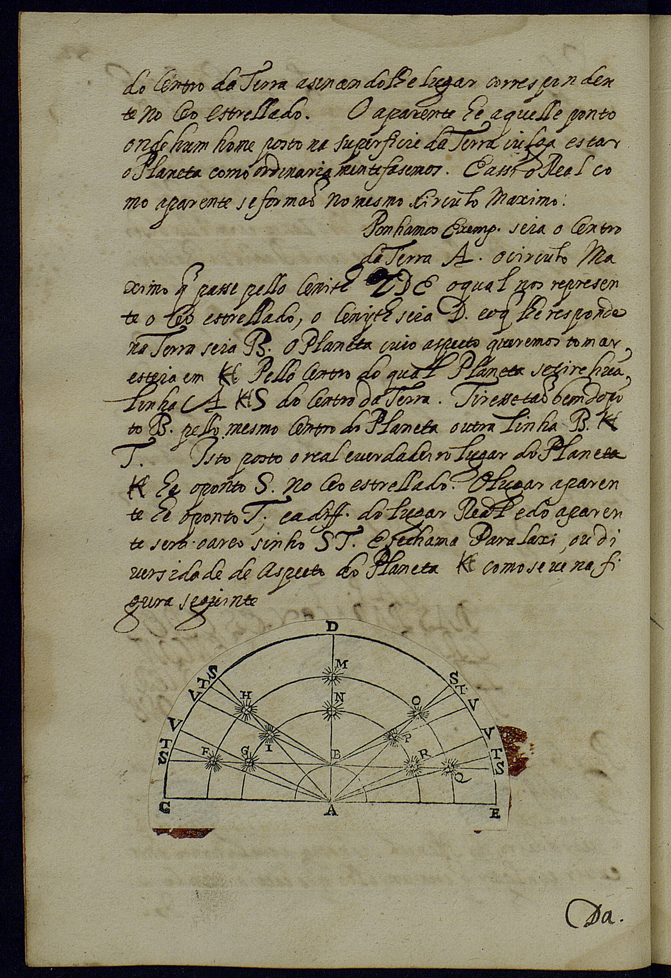 do Centro da Terra asinandolhe lugar corresponden
te no Ceo estrellado. O aparente he aquelle ponto
onde hum home posto na superficie da Terra iulga estar
o Planeta como ordinariamente fasemos. E assi o Real co
mo aparente se formaõ no mesmo Circulo Maximo:
Ponhamos Exemp. seia o Centro
da Terra A. o circulo Ma
ximo q̃ passe pello Cenith CDE o qual nos represen
te o Ceo estrellado, o Cenith seia D. eoq̃ lhe responde
na Terra seia B. O Planeta cuio aspecto queremos tomar
esteia em K Pello Centro do qual Planeta se tire hũa
Linha A K S do Centro da Terra. Tiresse taõbem do pō
to B. pello mesmo Centro do Planeta outra Linha B. K
T. Isto posto o real e verdadeiro lugar do Planeta
K he o ponto S. no Ceo estrellado. O lugar aparen
te he o ponto T; e a diff. do lugar Real e do aparen
te será o arco sinho ST. E se chama Paralaxi, ou di
versidade de Aspecto do Planeta K como se ve na fi
gura seguinte
D
M
S
T
L
H
N
O
S
T
V
V
I
B
P
V
T
S
F
G
R
Q
V
T
S
G
A
E
Da.